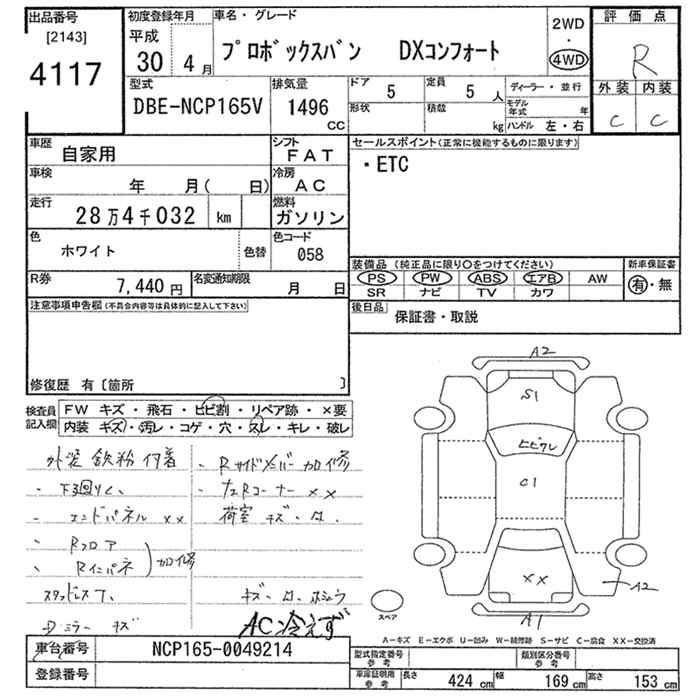 出品番号
[2143]
4117
初度登録年月
平成
30 4 月
車名・グレード
プロボックスバン DXコンフォート
2WD
・
4WD
評価点
R
外装 内装
C C
型式
DBE-NCP165V
排気量
1496
CC
ドア 5
定員 5 人
形状
積載 kg
ディーラー・並行
モデル年式 年
ハンドル 左・右
車歴
自家用
シフト
FAT
車検
年 月( 日)
冷房
AC
走行
28万4千032 km
燃料
ガソリン
色
ホワイト
色替
色コード
058
R券
7,440 円
名変通知期限
月 日
セールスポイント(正常に機能するものに限ります)
・ETC
装備品 (純正品に限り〇をつけてください)
PS PW ABS エアB AW
SR ナビ TV カワ
新車保証書
有・無
後日品
保証書・取説
注意事項申告欄 (不具合内容等は具体的に記入して下さい)
修復歴 有〔箇所 〕
検査員記入欄
FW キズ・飛石・ヒビ割・リペア跡・×要
内装 キズ・汚レ・コゲ・穴・スレ・キレ・破レ
外装 鉄粉付着
・下回りサビ
・エンドパネル ××
・Rフロア
・Rインパネ
加修
スタッドレスT、
ミラー キズ
・Rサイドメンバー加修
・左Rコーナー××
荷室 キズ・
キズ・
AC冷えず
A2
S1
ヒビワレ
C1
××
A2
A1
スペア
A-キズ E-エクボ U-凹み W-補修跡 S-サビ C-腐食 XX-交換済
車台番号
NCP165-0049214
登録番号
型式指定番号
参考
類別区分番号
参考
車庫証明用
参考
長さ 424 cm
幅 169 cm
高さ 153 cm